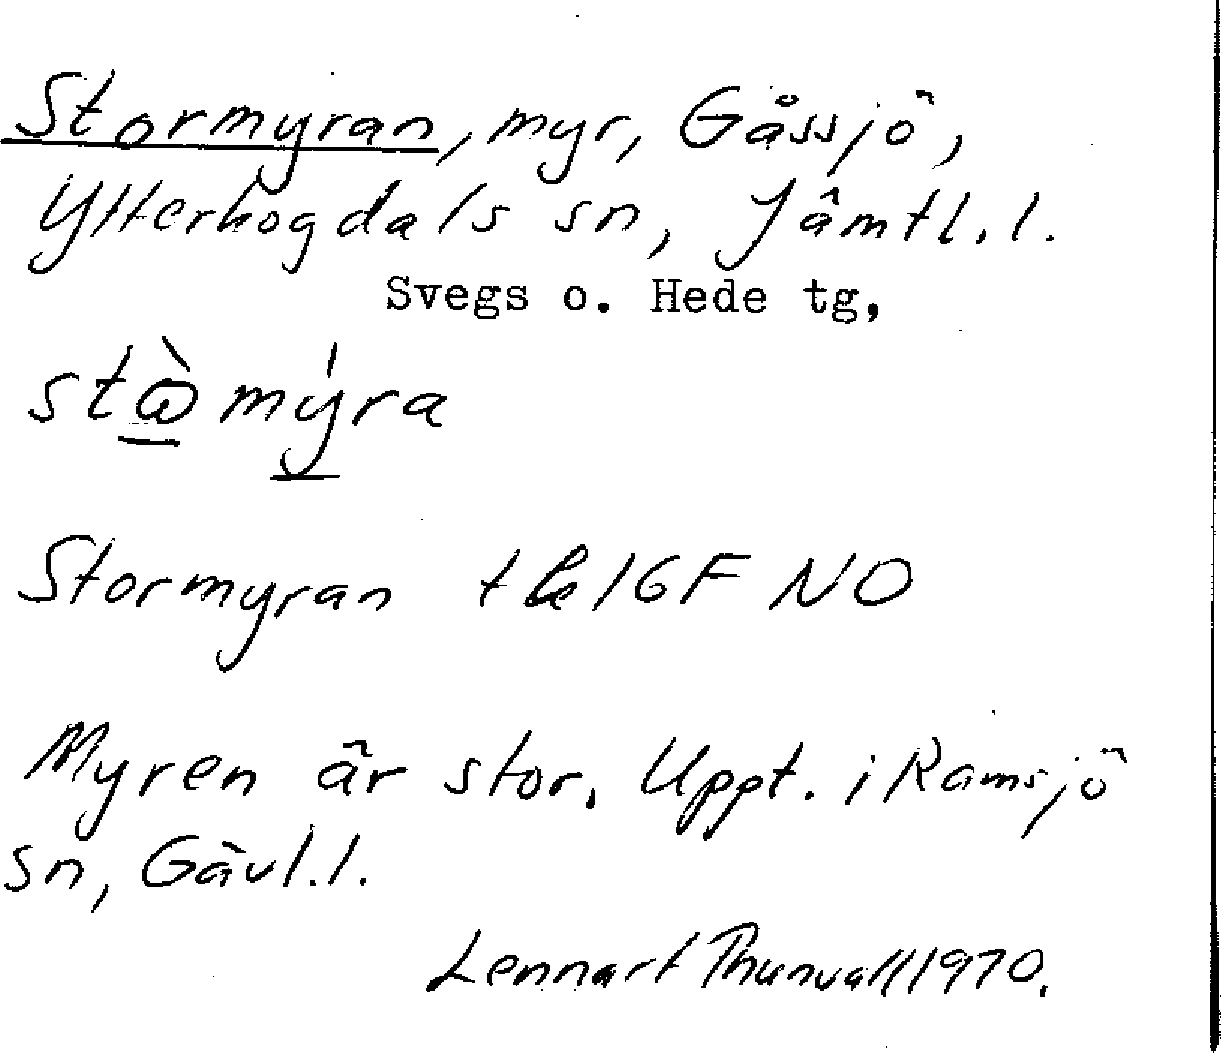 Stormyran, myr, Gåssjö,
Ytterhogdals sn, Jämtl. l.
Svegs o. Hede tg,
stὼmýra
Stormyran tk 16F NO
Myren är stor. Uppt. i Ramsjö
sn, Gävl. l.
Lennart Thunvall 1970.